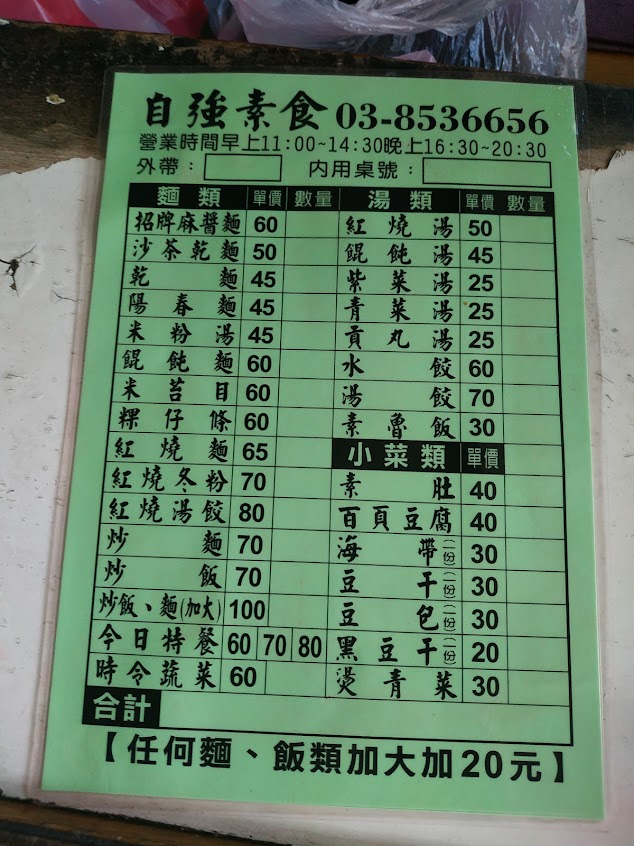 自強素食 03-8536656
營業時間早上11:00~14:30晚上16:30~20:30
外帶： 内用桌號：
麵類 單價 數量 湯類 單價 數量
招牌麻醬麵 60 紅燒湯 50
沙茶乾麵 50 餛飩湯 45
乾麵 45 紫菜湯 25
陽春麵 45 青菜湯 25
米粉湯 45 貢丸湯 25
餛飩麵 60 水餃 60
米苔目 60 湯餃 70
粿仔條 60 素魯飯 30
紅燒麵 65 小菜類 單價
紅燒冬粉 70 素肚 40
紅燒湯餃 80 百頁豆腐 40
炒麵 70 海帶(一份) 30
炒飯 70 豆干(一份) 30
炒飯、麵(加大) 100 豆包(一份) 30
今日特餐 60 70 80 黑豆干(一份) 20
時令蔬菜 60 燙青菜 30
合計
【任何麵、飯類加大加20元】